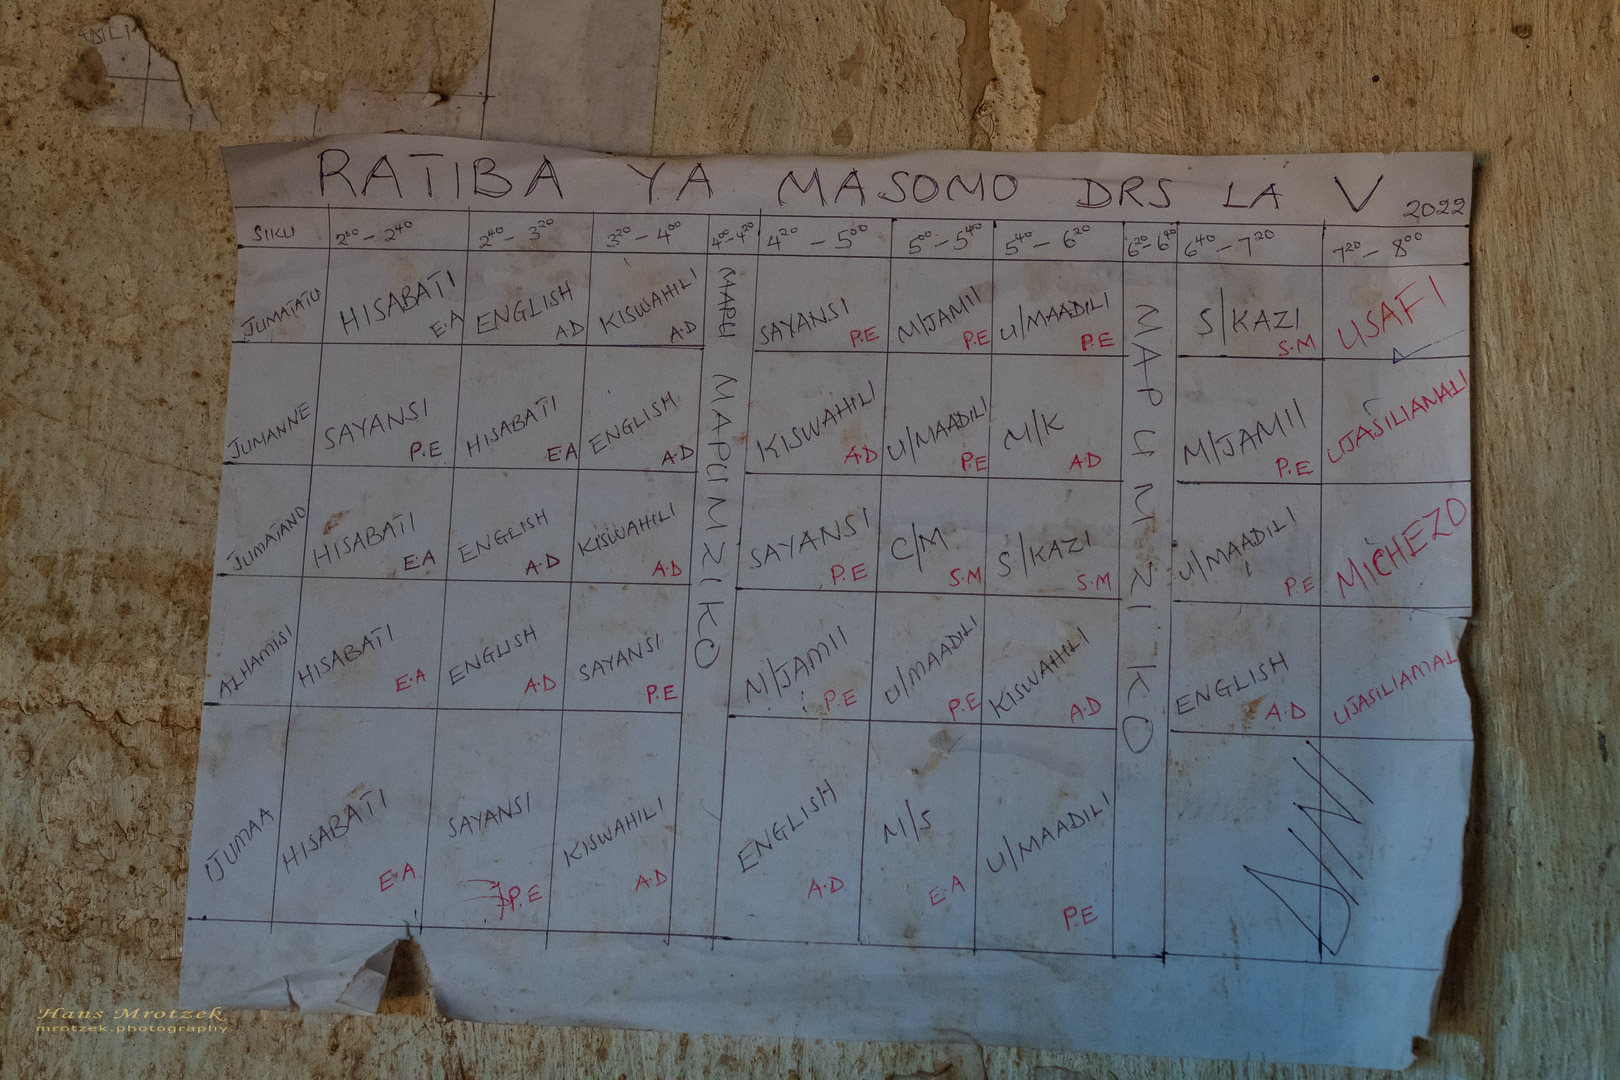 RATIBA YA MASOMO DRS LA V 2022
SIKU 2⁰⁰ - 2⁴⁰ 2⁴⁰ - 3²⁰ 3²⁰ - 4⁰⁰ 4⁰⁰-4²⁰ 4²⁰ - 5⁰⁰ 5⁰⁰ - 5⁴⁰ 5⁴⁰ - 6²⁰ 6²⁰-6⁴⁰ 6⁴⁰ - 7²⁰ 7²⁰ - 8⁰⁰
JUMATATU HISABATI E.A ENGLISH A.D KISWAHILI A.D SAYANSI P.E M/JAMII P.E U/MAADILI P.E S/KAZI S.M USAFI
MAPU MAPUMZIKO
MAPUMZIKO
JUMANNE SAYANSI P.E HISABATI E.A ENGLISH A.D KISWAHILI A.D U/MAADILI P.E M/K A.D M/JAMII P.E UJASILIAMALI
JUMATANO HISABATI E.A ENGLISH A.D KISWAHILI A.D SAYANSI P.E C/M S.M S/KAZI S.M U/MAADILI P.E MICHEZO
ALHAMISI HISABATI E.A ENGLISH A.D SAYANSI P.E M/JAMII P.E U/MAADILI P.E KISWAHILI A.D ENGLISH A.D UJASILIAMAL
IJUMAA HISABATI E.A SAYANSI P.E KISWAHILI A.D ENGLISH A.D M/S E.A U/MAADILI P.E
Hans Mrotzek
mrotzek.photography